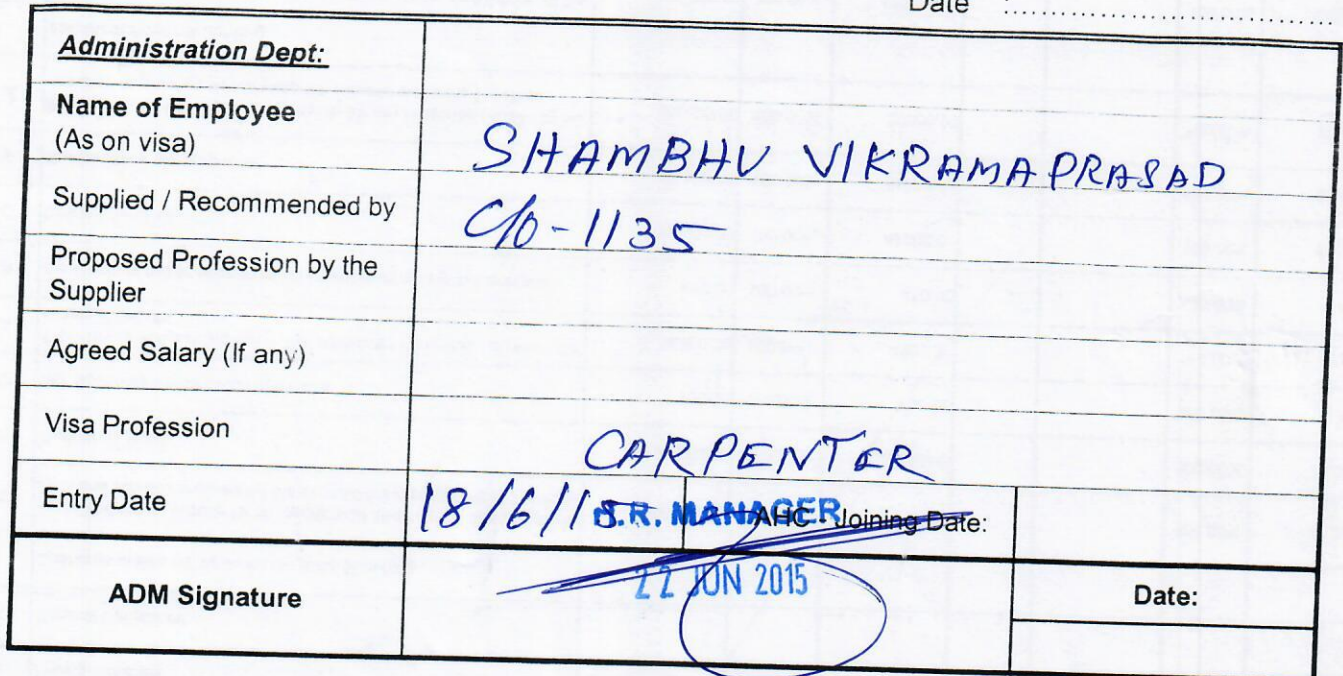 Date :
Administration Dept:
Name of Employee
(As on visa)
SHAMBHU VIKRAMAPRASAD
Supplied / Recommended by
C/O - 1135
Proposed Profession by the
Supplier
Agreed Salary (If any)
Visa Profession
CARPENTER
Entry Date
18/6/15
MANAGER
AHC - Joining Date:
22 JUN 2015
ADM Signature
Date: